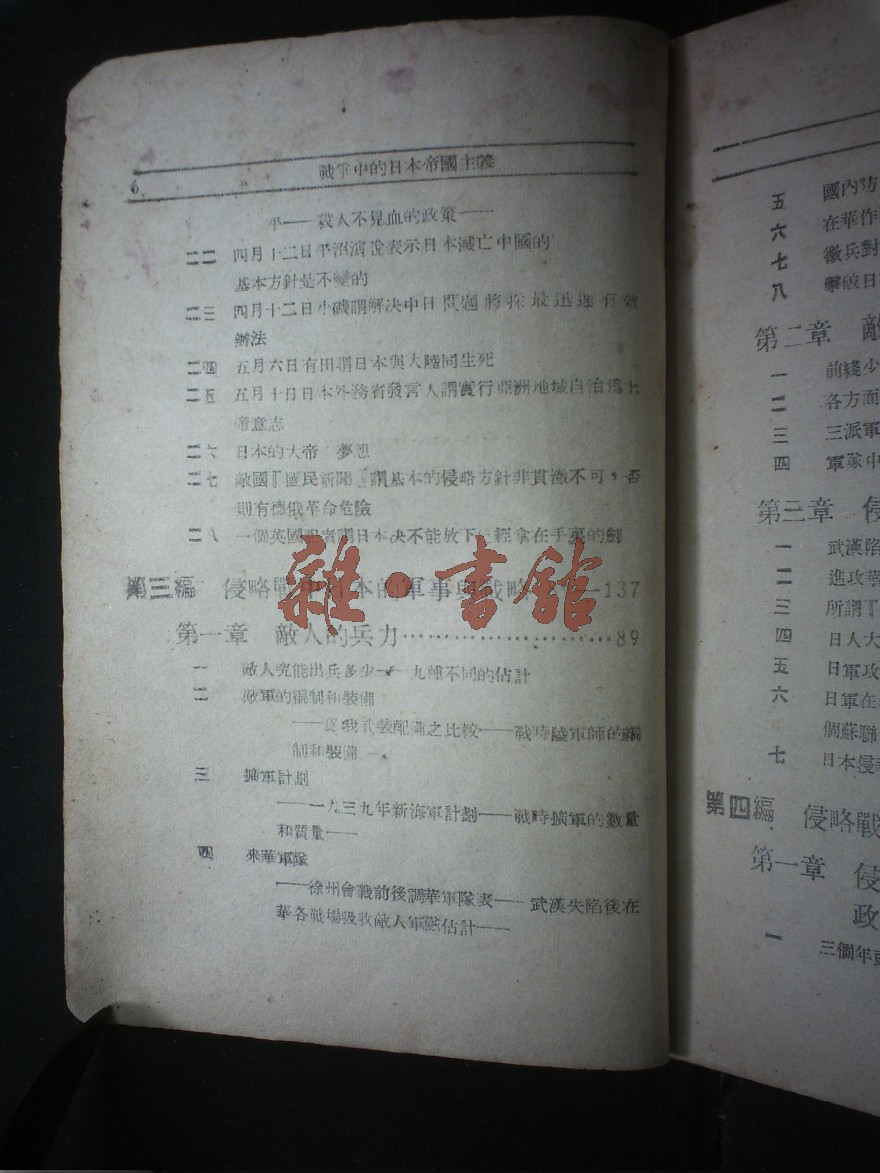 6
戰爭中的日本帝國主義
平——殺人不見血的政策——
二二 四月十二日平沼演說表示日本滅亡中國的
基本方針是不變的
二三 四月十二日小磯謂解决中日問題將採最迅速有效
辦法
二四 五月六日有田謂日本與大陸同生死
二五 五月十日日本外務省發言人謂實行亞洲地域自治爲上
帝意志
二六 日本的大帝 夢想
二七 敵國『國民新聞』謂基本的侵略方針非貫澈不可，否
則有德俄革命危險
二八 一個英國 者謂日本决不能放下 經拿在手裏的劍
第三編 侵略戰中日本的軍事與戰略 —137
第一章 敵人的兵力……………………89
一 敵人究能出兵多少——九種不同的估計
二 敵軍的編制和裝備
——敵我武裝配備之比較——戰時陸軍師的編
制和裝備—
三 擴軍計劃
——一九三九年新海軍計劃——戰時擴軍的數量
和質量——
四 來華軍隊
——徐州會戰前後調華軍隊表——武漢失陷後在
華各戰場吸收敵人軍隊估計——
雜·書館
五 國內防
六 在華作
七 徵兵對
八 擊破日
第二章 敵
一 前綫少
二 各方面
三 三派軍
四 軍隊中
第三章 侵
一 武漢陷
二 進攻華
三 所謂『
四 日人大
五 日軍攻
六 日軍在
個蘇聯
七 日本侵
第四編 侵略戰
第一章 侵
政
一 三個年